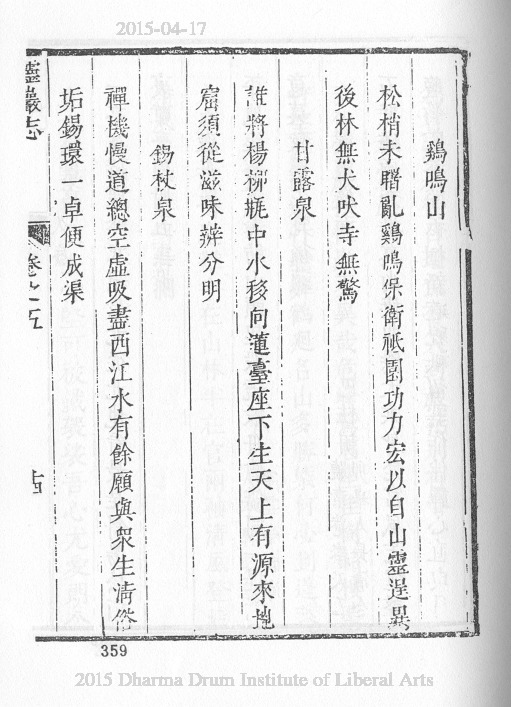 2015-04-17
鷄鳴山
松梢未曙亂鷄鳴保衛祗園功力宏以自山靈逞異
後林無犬吠寺無驚
甘露泉
誰將楊柳甁中水移向蓮臺座下生天上有源來地
窟須從滋味辨分明
錫杖泉
禪機慢道總空虛吸盡西江水有餘願與衆生淸俗
垢錫環一卓便成渠
靈巖志
卷之五
359
2015 Dharma Drum Institute of Liberal Arts